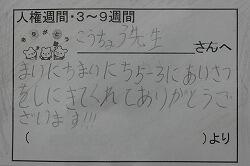 人権週間・3～9週間
ありがとう
こうちょう先生
さんへ
まいにちまいにちちろーろにあいさつ
をしにきてくれてありがとうご
ざいます!!!
( )より